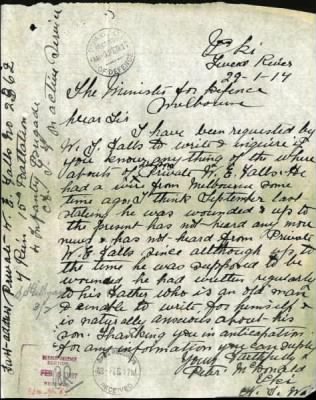 Tweed River
22-1-17
The Minister for Defence
Melbourne
Dear Sir
I have been requested by
W. J. Falls to write & inquire if
you know anything of the where
abouts of Private W. E. Falls. He
had a wire from Melbourne some
time ago, I think September last
stating he was wounded & up to
the present has not heard any more
news & has not heard from Private
W. E. Falls since although up to
the time he was supposed to be
wounded he had written regularly
to his father who is an old man
& unable to write for himself &
is naturally anxious about his
son. Thanking you in anticipation
for any information you can supply
Yours faithfully
McDonald
Uki
N. S. W.
Full address Private W. E. Falls No 2362
15 Battalion
4 Infantry Brigade
on active service
DEFENCE
RECEIVED